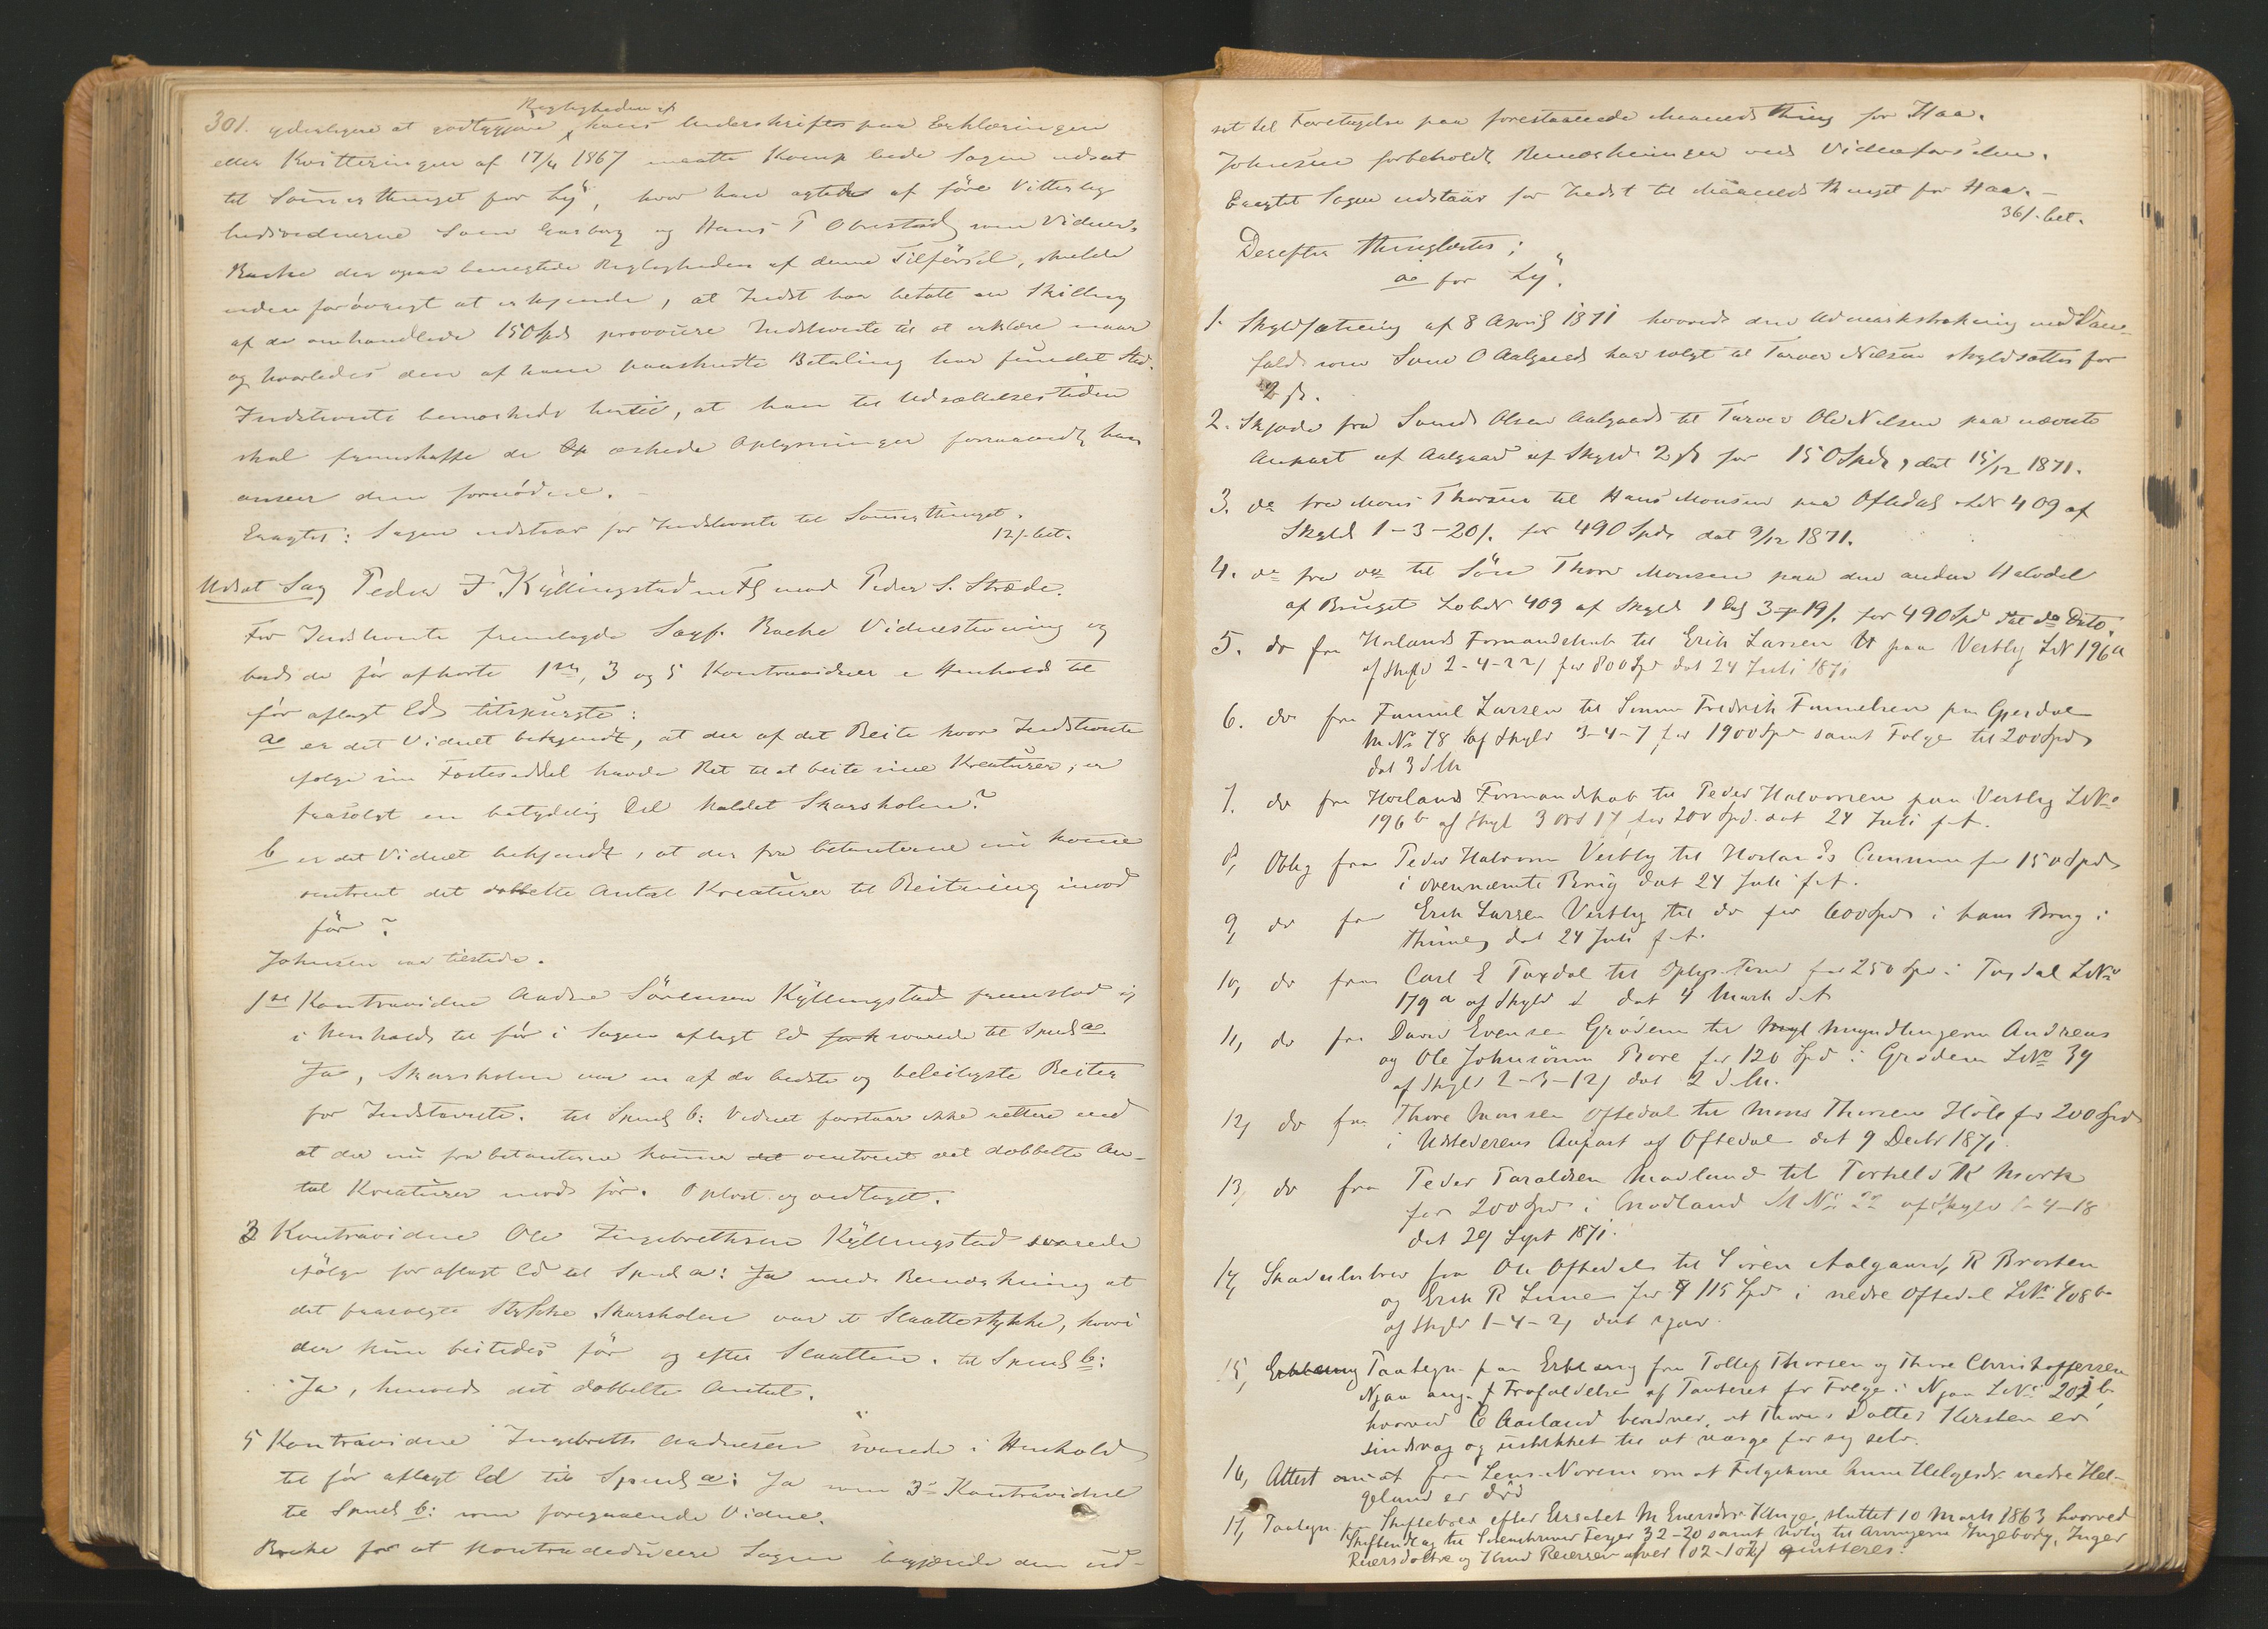 Rigtigheden af
301. yderligere at godtgjøre hans Underskrift paa Erklæringen
eller Kvitteringen af 17/4 1867 maatte Komp bede Sagen udsat
til Sommerthinget for Ly, hvor han agtede at føre Vitterlig
hedsvidnerne Svend og Hans T Obrestad som Vidner.
Bache der ogsaa benegtede Rigtigheden af denne Tilførsel, skulde
uden forøvrigt at erkjende, at Indst har betalt en Skilling
af de omhandlede 150 Spd provocere Indstevnte til at erklære naar
og hvorledes den af ham paaskudte Betaling har fundet Sted.
Indstevnte bemærkede hertil, at han til Udsættelsestiden
skal fremskaffe de æskede Oplysninger forsaavidt han
anser dem fornødne. –
Eragtet: Sagen udstaar for Indstevnte til Sommerthinget.
12/ bet.
Udsat Sag Peder J. Kyllingstad m Fl mod Peder S. Stræde.
For Indstevnte fremlagde Sagf. Bache Vidnestevning og
bad de før afhørte 1ste, 3 og 5 Kontravidner i Henhold til
før aflagt Ed tilspurgte:
a er det Vidnet bekjendt, at der af det Beite hvor Indstevnte
ifølge sin Festeseddel havde Ret til at beite sine Kreaturer, er
frasolgt en betydelig Del kaldet Skarsholen?
b er det Vidnet bekjendt, at der fra Citanterne nu komme
omtrent det dobbelte Antal Kreaturer til Beitning imod
før?
Johnsen var tilstede.
1ste Kontravidne Andre Sörensen Kyllingstad fremstod og
i Henhold til før i Sagen aflagt Ed svarede til Spml a
Ja, Skarsholen var en af de bedste og beleiligste Beiter
for Indstevnte. til Spml b: Vidnet forstaar ikke rettere end
at der nu fra Citanterne komme det omtrent det dobbelte An-
tal Kreaturer mod før. Oplæst og vedtaget.
3 Kontravidne Ole Ingebrethsen Kyllingstad svarede
ifølge før aflagt Ed til Spml a: Ja med Bemærkning at
det frasolgte Stykke Skarsholen var et Slaattestykke, hvori
der kun beitedes før og efter Slaatten. til Spml b:
Ja, henved det dobbelte Antal.
5 Kontravidne Ingebreth Andresen svarede i Henhold
til før aflagt Ed til Spml a: Ja som 3de Kontravidne
til Spml b: som foregaaende Vidne.
Bache for at kontradeducere Sagen begjærede den ud-
sat til Foretagelse paa forestaaende Maaneds Thing for Haa.
Johnsen forbeholdt Bemærkninger ved Vidneførselen.
Eragtet Sagen udstaar for Indst til Maaneds Thinget for Haa. –
36/ bet.
Derefter thinglæstes:
a for Ly.
1. Skyldsætning af 8 April 1871 hvorved den Udmarkstrækning med Vand-
fald som Svend O Aalgaard har solgt til Farver Nielsen skyldsættes for
2 ß.
2. Skjøde fra Svend Olsen Aalgaard til Farver Ole Nielsen paa nævnte
Anpart af Aalgaard af Skyld 2 ß for 150 Spdr, dat 15/12 1871.
3. do fra Mons Thorsen til Hans Monsen paa Oftedal LNr 409 af
Skyld 1-3-20/. for 490 Spdr dat 9/12 1871.
4. do fra do til Søn Thore Monsen paa den anden Halvdel
af Bruget LøbNr 409 af Skyld 1 Dal 3-19/. for 490 Spd dat do Dato
5. do fra Hørlands Formandskab til Erik Larsen paa Vestly LNr 196a
af Skyld 2-4-22/ for 800 Spd dat 24 Juli 1871
6. do fra Larsen til Sønnen Fredrik paa Gjesdal
M No 78 af Skyld 3-4-7 for 1900 Spd samt Folge til 200 Spd
dat 3 d.M.
7. do fra Hørlands Formandskab til Peder Halvorsen paa Vestly LNo
196b af Skyld 3 Ort 17 for 200 Spd. dat 24 Juli f.A.
8, Oblig fra Peder Halvorsen Vestly til Hørlands Commune for 150 Spd
i ovennævnte Brug dat 24 Juli f.A.
9, do fra Erik Larsen Vestly til do for 600 Spd i hans Brug i
dat 24 Juli f.A.
10, do fra Carl E Taxdal til Oplys. Fond for 250 Spd i Taxdal LNo
179 a af Skyld dat 4 Marts d.A
11, do fra David Evensen Grødem til Myndlingerne Andreas
og Ole Johnsønn Bore for 120 Spd i Grødem LNo 39
af Skyld 2-3-12/ dat 2 d.M.
12, do fra Thore Monsen Oftedal til Mons Thorsen Høle for 200 Spd
i Udstederens Anpart af Oftedal dat 9 Decbr 1871.
13, do fra Peder Taraldsen Madland til Torkild K Mork
for 200 Spd i Madland M No 22 af Skyld 1-4-18
dat 29 Sept 1871.
14, Skadesløsbrev fra Ole Oftedal til Søren Aalgaard, R Brosten
og Erik R Lime for 115 Spd i nedre Oftedal LNo 408 b
af Skyld 1-4-2, dat igaar.
15, Erklæring Paategn. paa Erklæring fra Tollef Thorsen og Thore Christoffersen
Njaa ang. Frafaldelse af Panteret for Folge i Njaa LNo 202 b
hvorved E Aarland bevidner, at Thores Datter Kirsten er
sindsvag og uskikket til at værge for sig selv.
16, Attest fra Lens. Norem om at Folgekone Anne Helgesdr nedre Hel-
geland er død
17, Paategn. paa Skiftebrev efter Elisabet M Enersdr Kluge, sluttet 10 Marts 1863 hvorved
til Sorenskriver Feyer 32-20 samt Udlæg til Arvingerne Ingeborg, Inger
Reiersdøttre og Knud Reiersen 102-10½/ qvitteres.